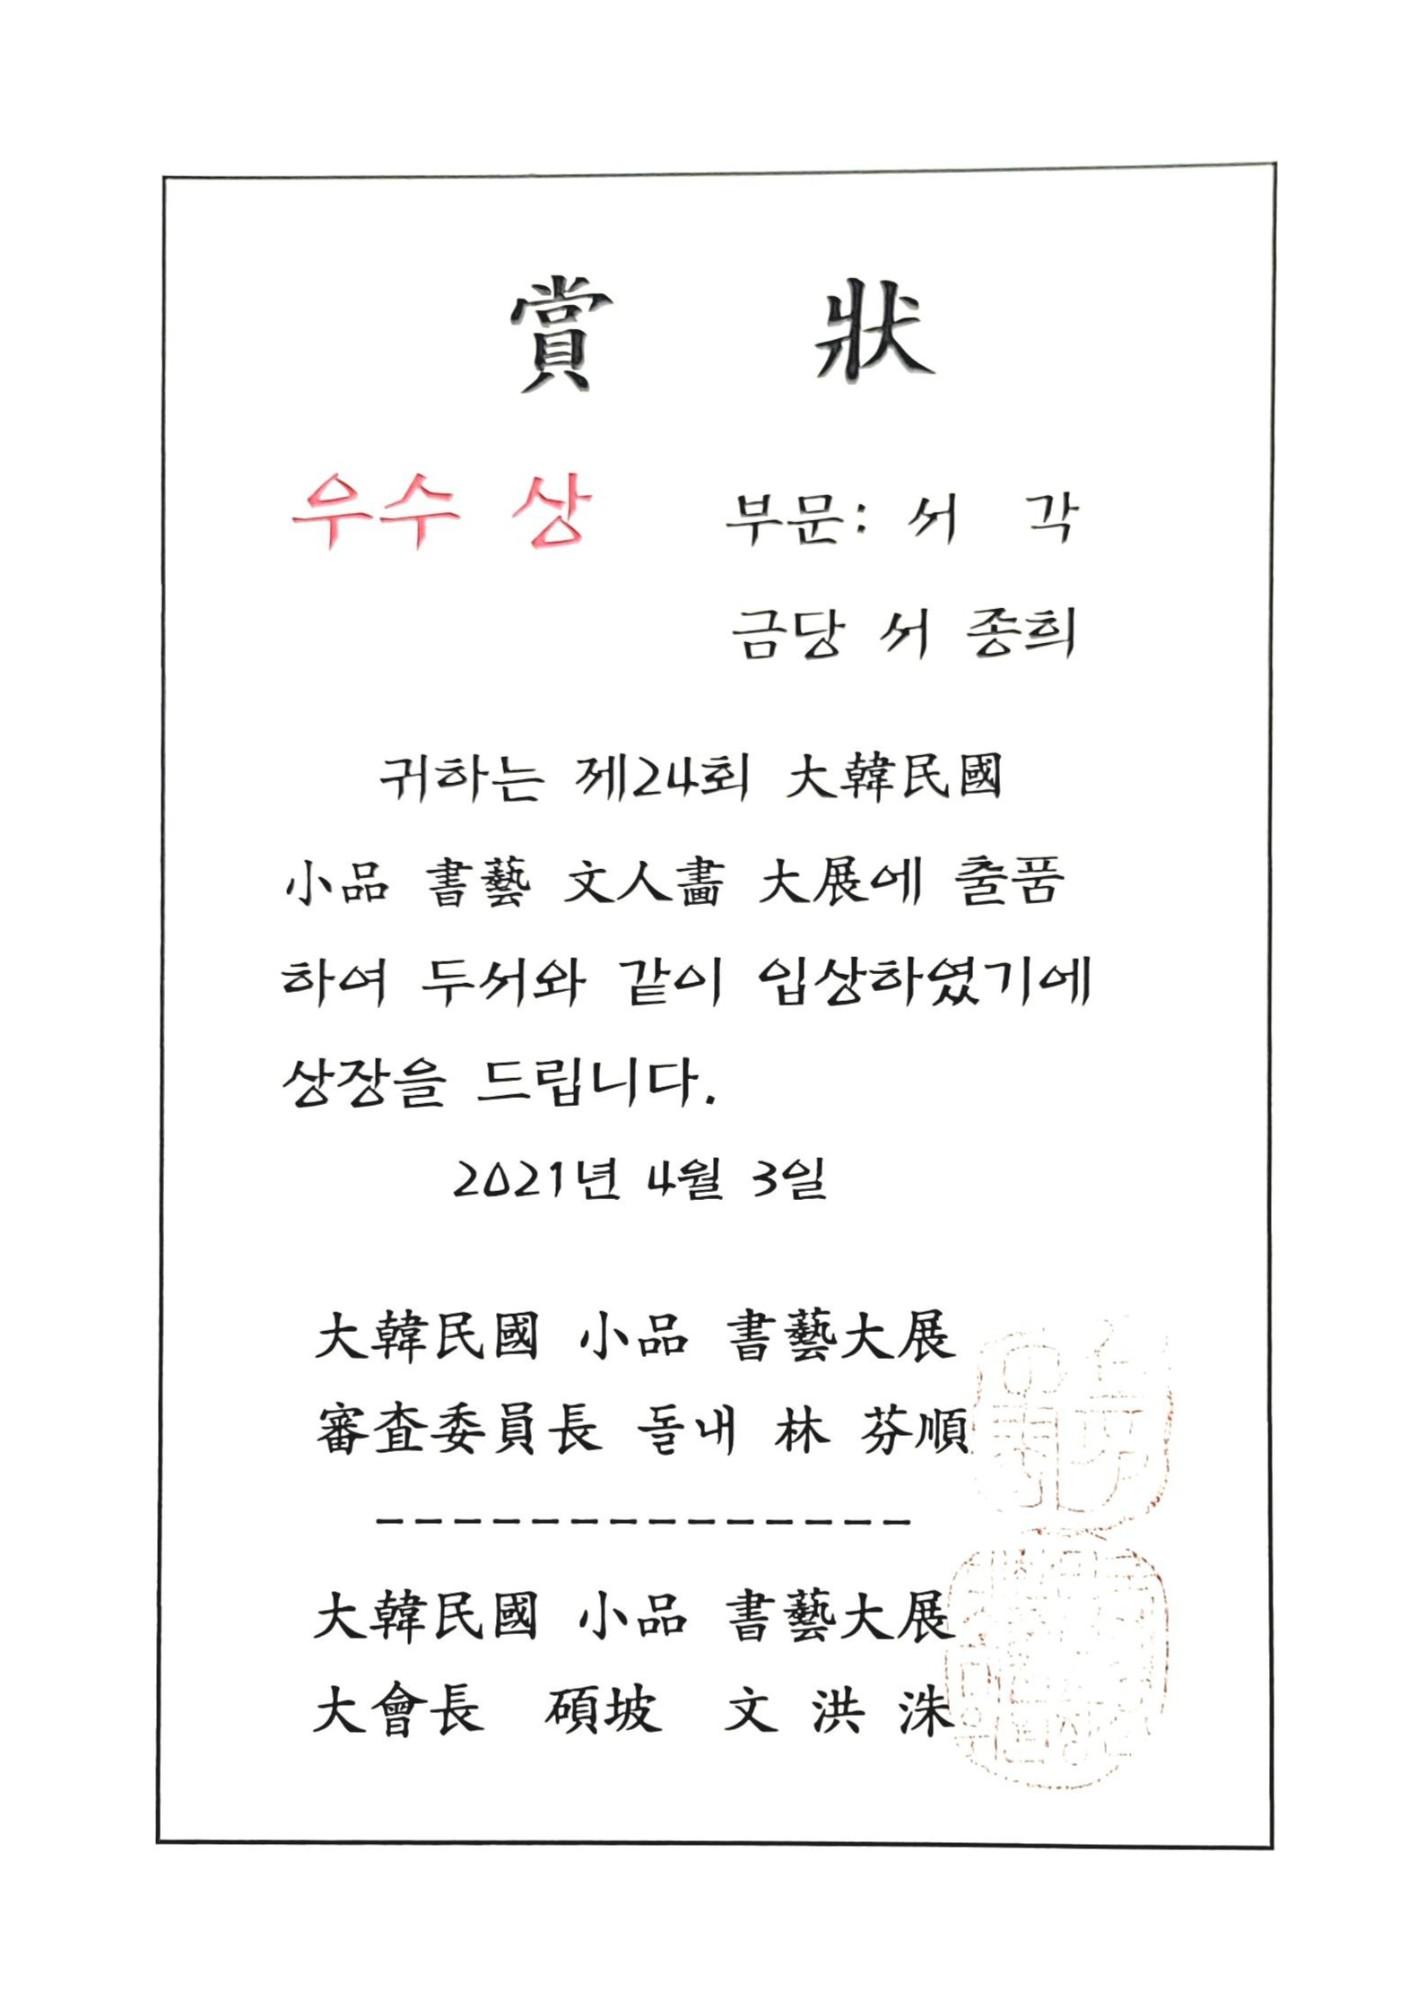 賞 狀
우수 상 부문: 서 각
금당 서 종희
귀하는 제24회 大韓民國
小品 書藝 文人畵 大展에 출품
하여 두서와 같이 입상하였기에
상장을 드립니다.
2021년 4월 3일
大韓民國 小品 書藝大展
審査委員長 돌내 林 芬順
---------------
大韓民國 小品 書藝大展
大會長 碩坡 文 洪 洙